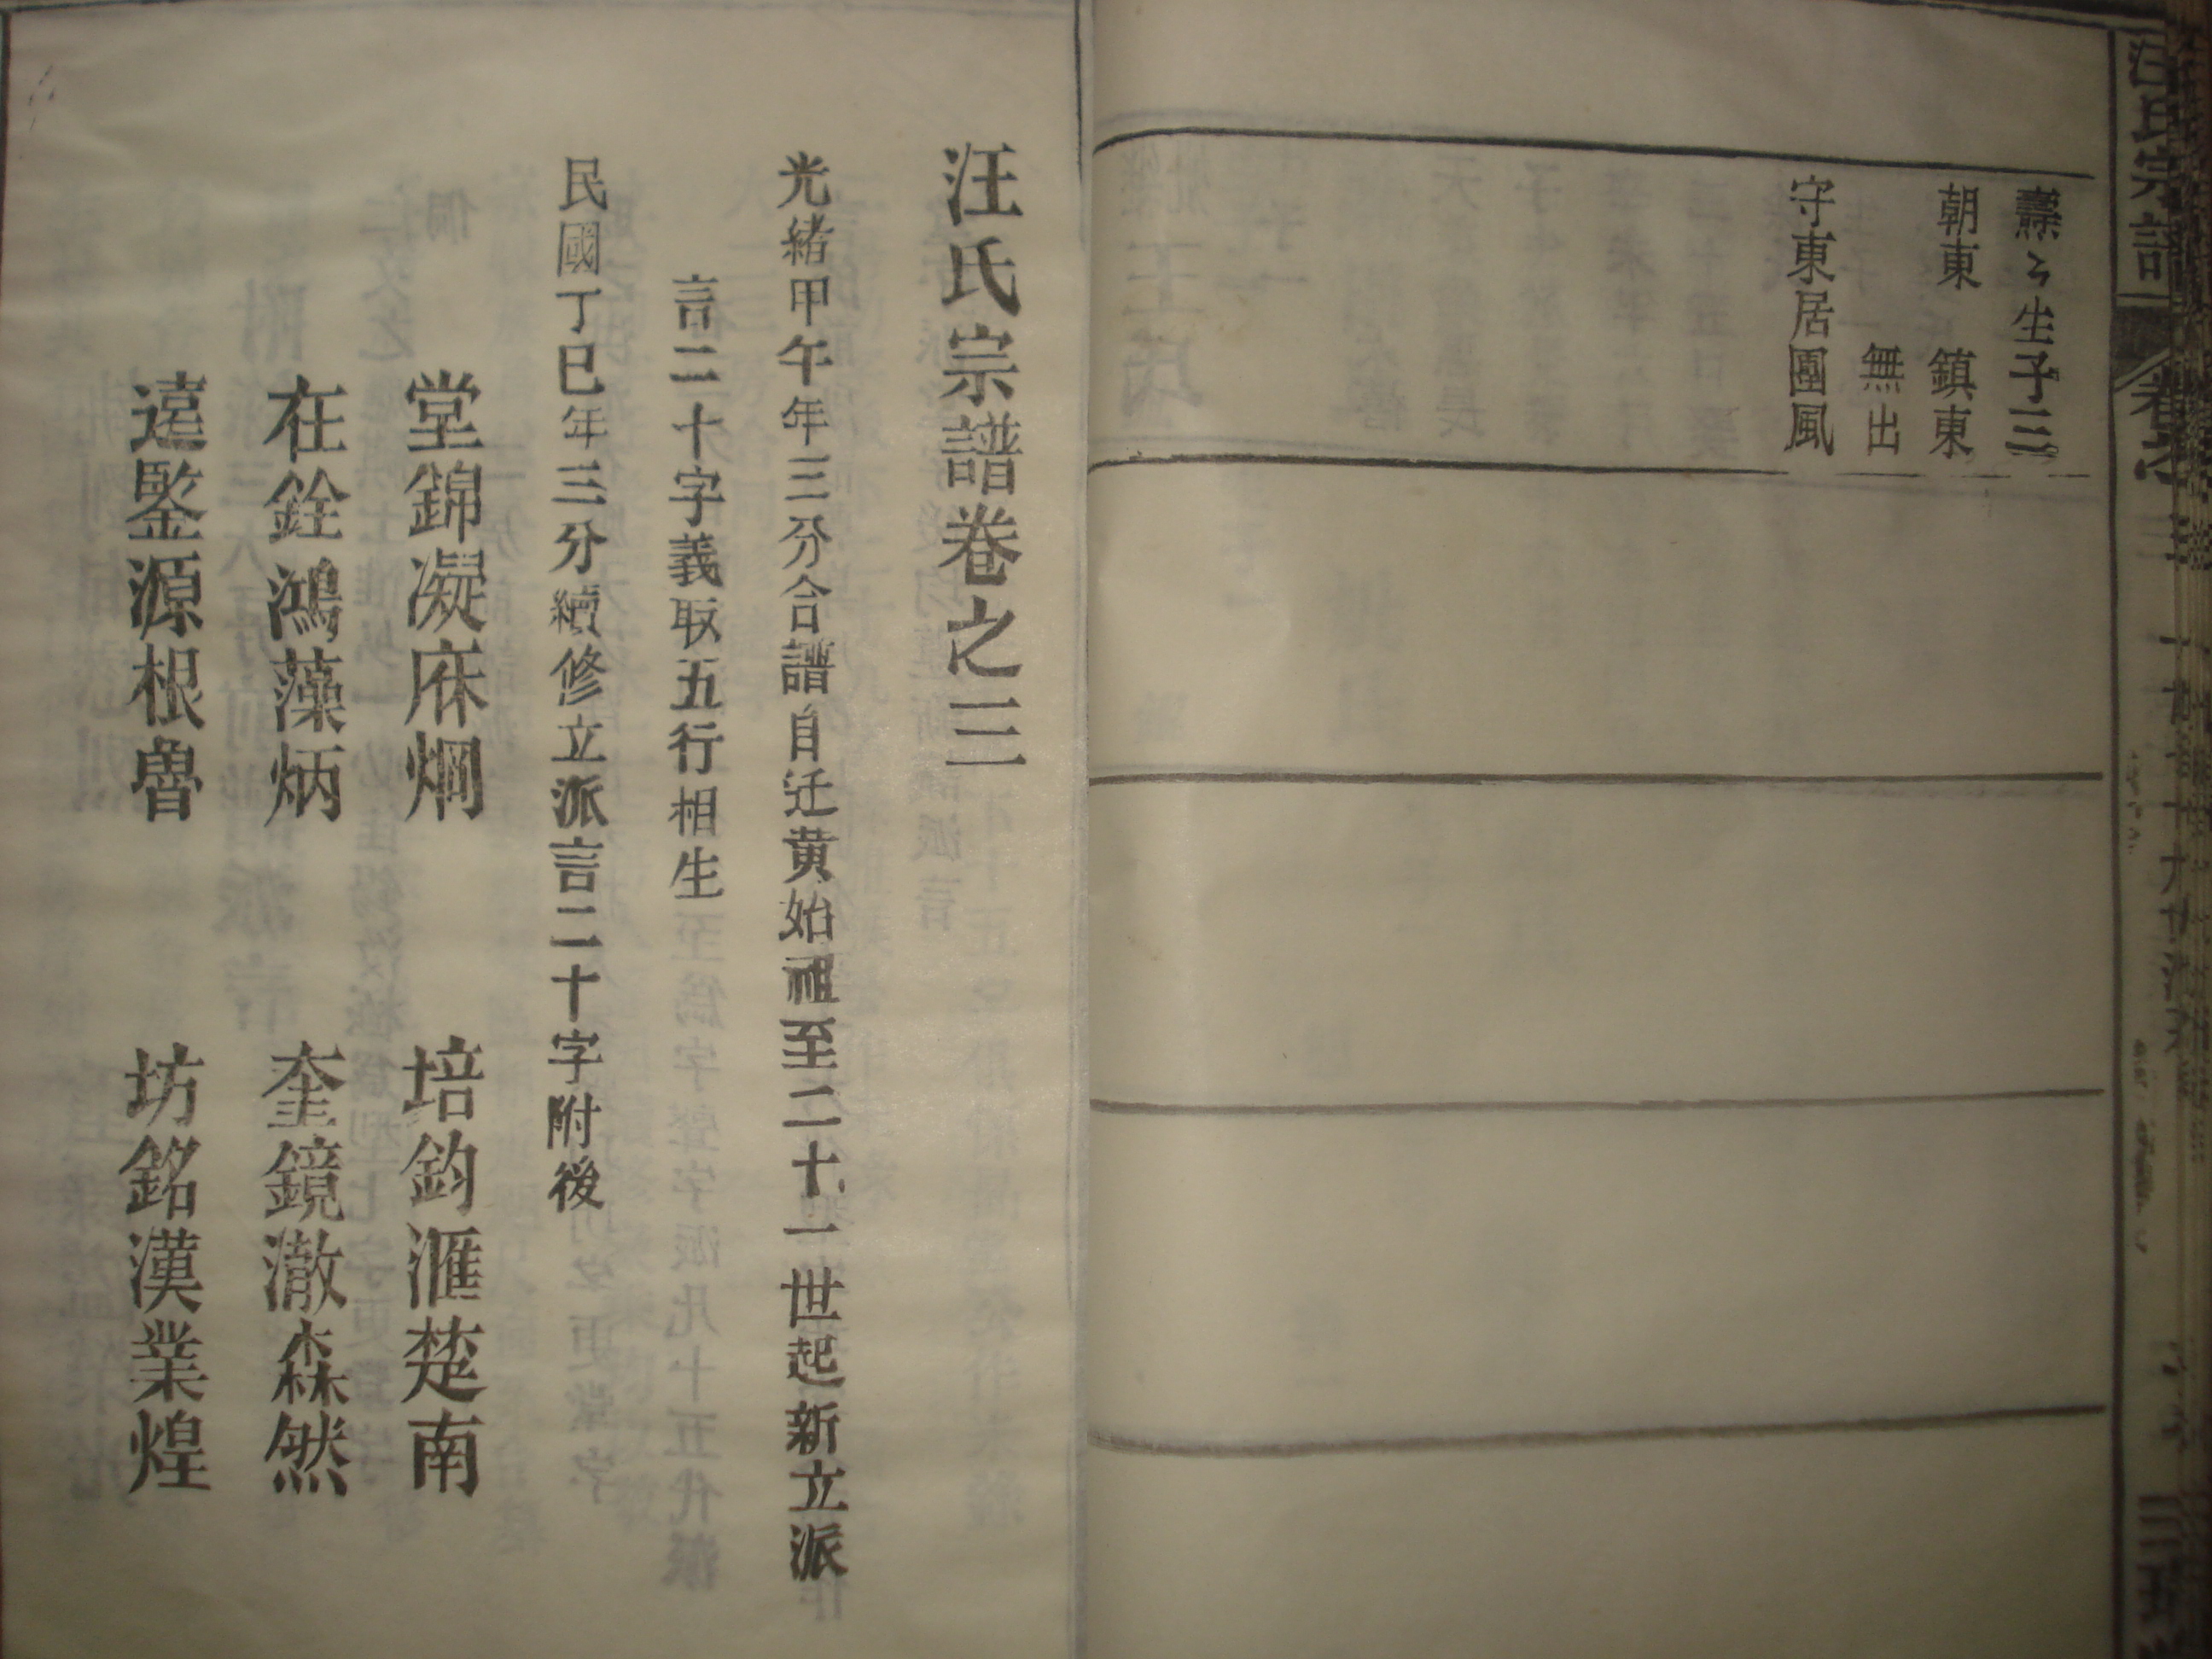 汪氏宗譜
燾〻生子三
朝東　鎮東
無出
守東居團風
汪氏宗譜卷之三
光緒甲午年三分合譜自迁黄始祖至二十一世起新立派
言二十字義取五行相生
民國丁巳年三分續修立派言二十字附後
堂錦凝庥炯　培鈞滙楚南
在銓鴻藻炳　奎鏡澈森然
遠鍳源根魯　坊銘漢業煌